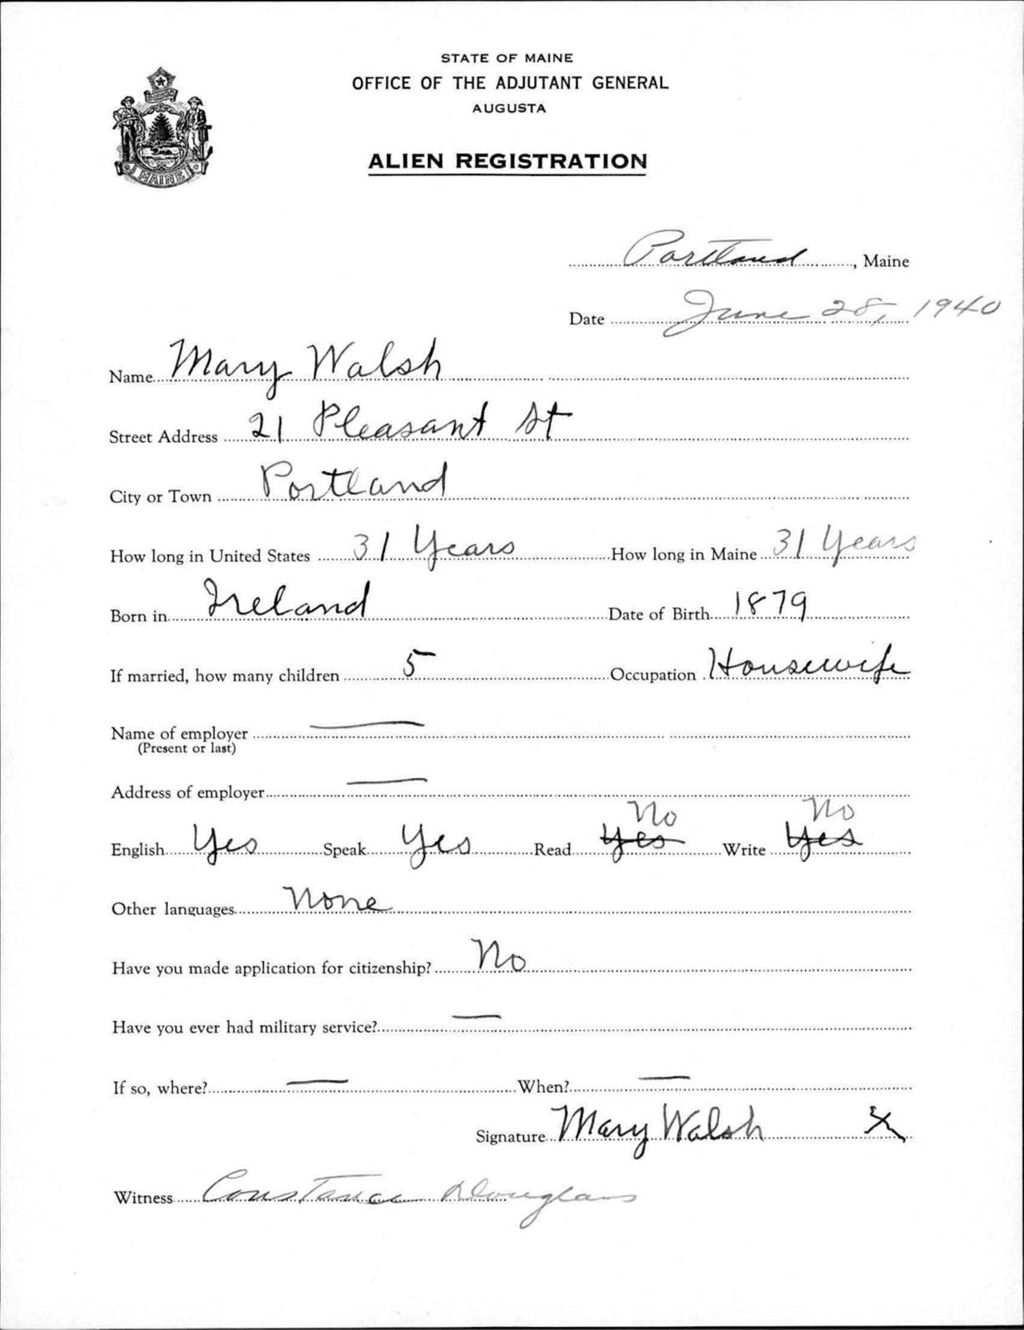 STATE OF MAINE
OFFICE OF THE ADJUTANT GENERAL
AUGUSTA
ALIEN REGISTRATION
MAINE
Portland, Maine
Date June 28, 1940
Name Mary Walsh
Street Address 21 Pleasant St
City or Town Portland
How long in United States 31 Years How long in Maine 31 Years
Born in Ireland Date of Birth 1879
If married, how many children 5 Occupation Housewife
Name of employer —
(Present or last)
Address of employer —
No No
English Yes Speak Yes Read Yes Write Yes
Other languages None
Have you made application for citizenship? No
Have you ever had military service? —
If so, where? — When? —
Signature Mary Walsh X
Witness Constance Douglass